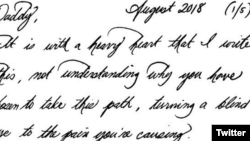 Daddy, August 2018 (1/5)
It is with a heavy heart that I write
this, not understanding why you have
chosen to take this path, turning a blind
eye to the pain you're causing.
Twitter